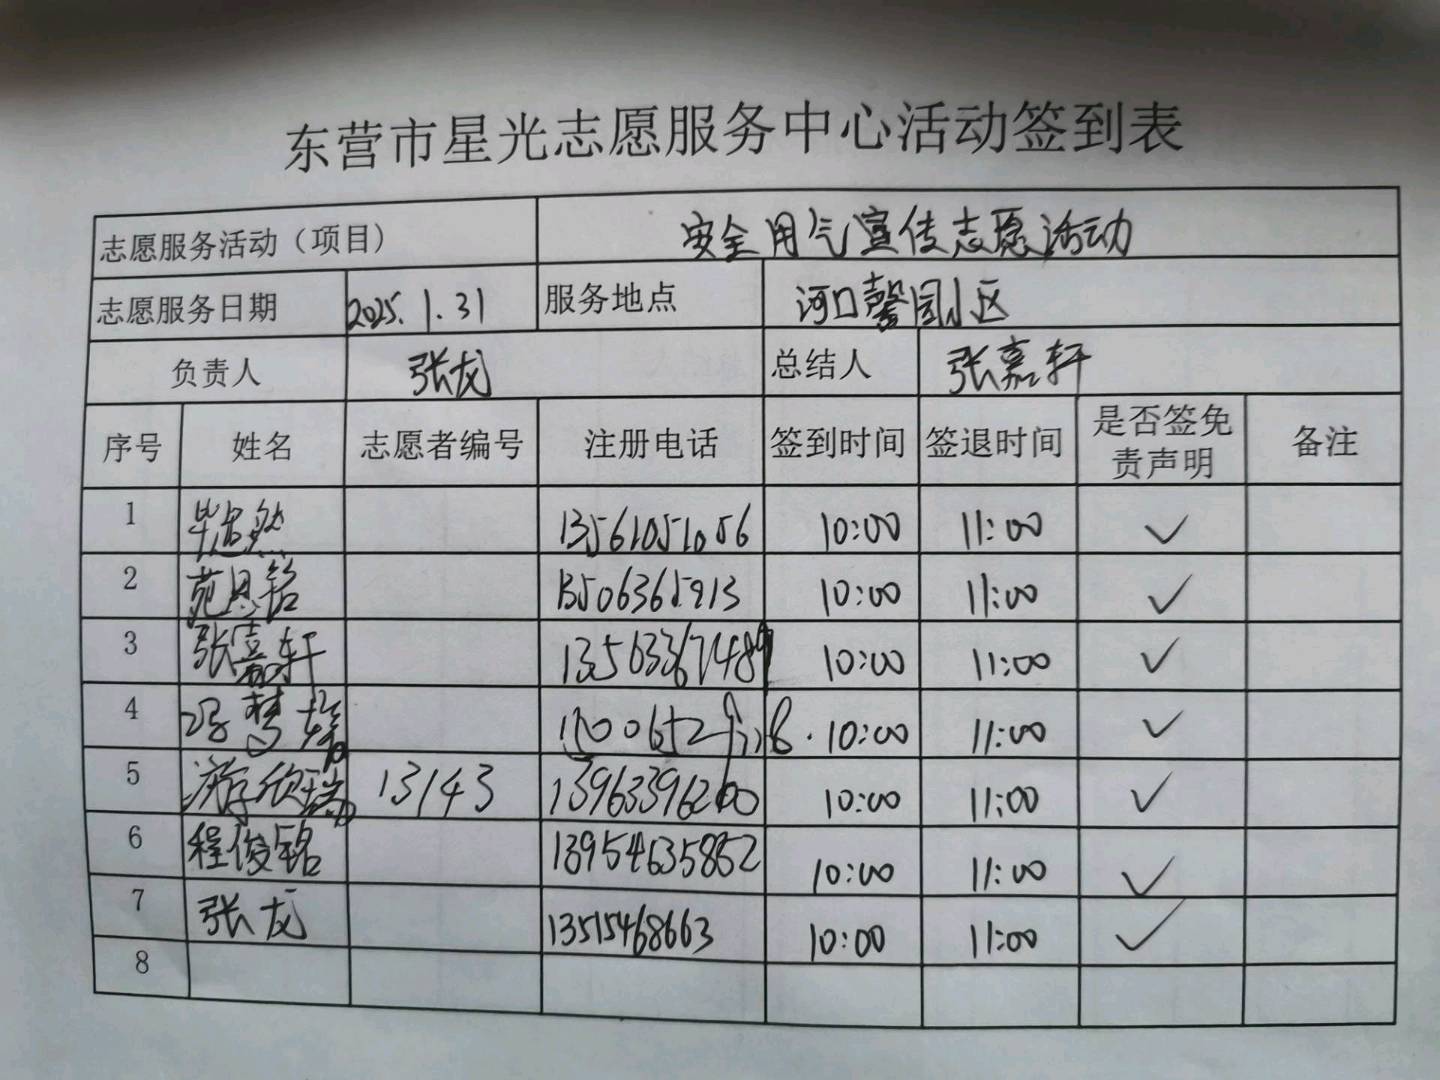 东营市星光志愿服务中心活动签到表
志愿服务活动（项目） 安全用气宣传志愿活动
志愿服务日期 2025.1.31 服务地点 河口馨园小区
负责人 张龙 总结人 张嘉轩
序号 姓名 志愿者编号 注册电话 签到时间 签退时间 是否签免责声明 备注
1 毕思然 13561051056 10:00 11:00 ✓
2 苑恩铭 13506365913 10:00 11:00 ✓
3 张嘉轩 13563367489 10:00 11:00 ✓
4 冯梦 10:00 11:00 ✓
5 游欣瑞 13143 13963396200 10:00 11:00 ✓
6 程俊铭 13954635852 10:00 11:00 ✓
7 张龙 13515468663 10:00 11:00 ✓
8